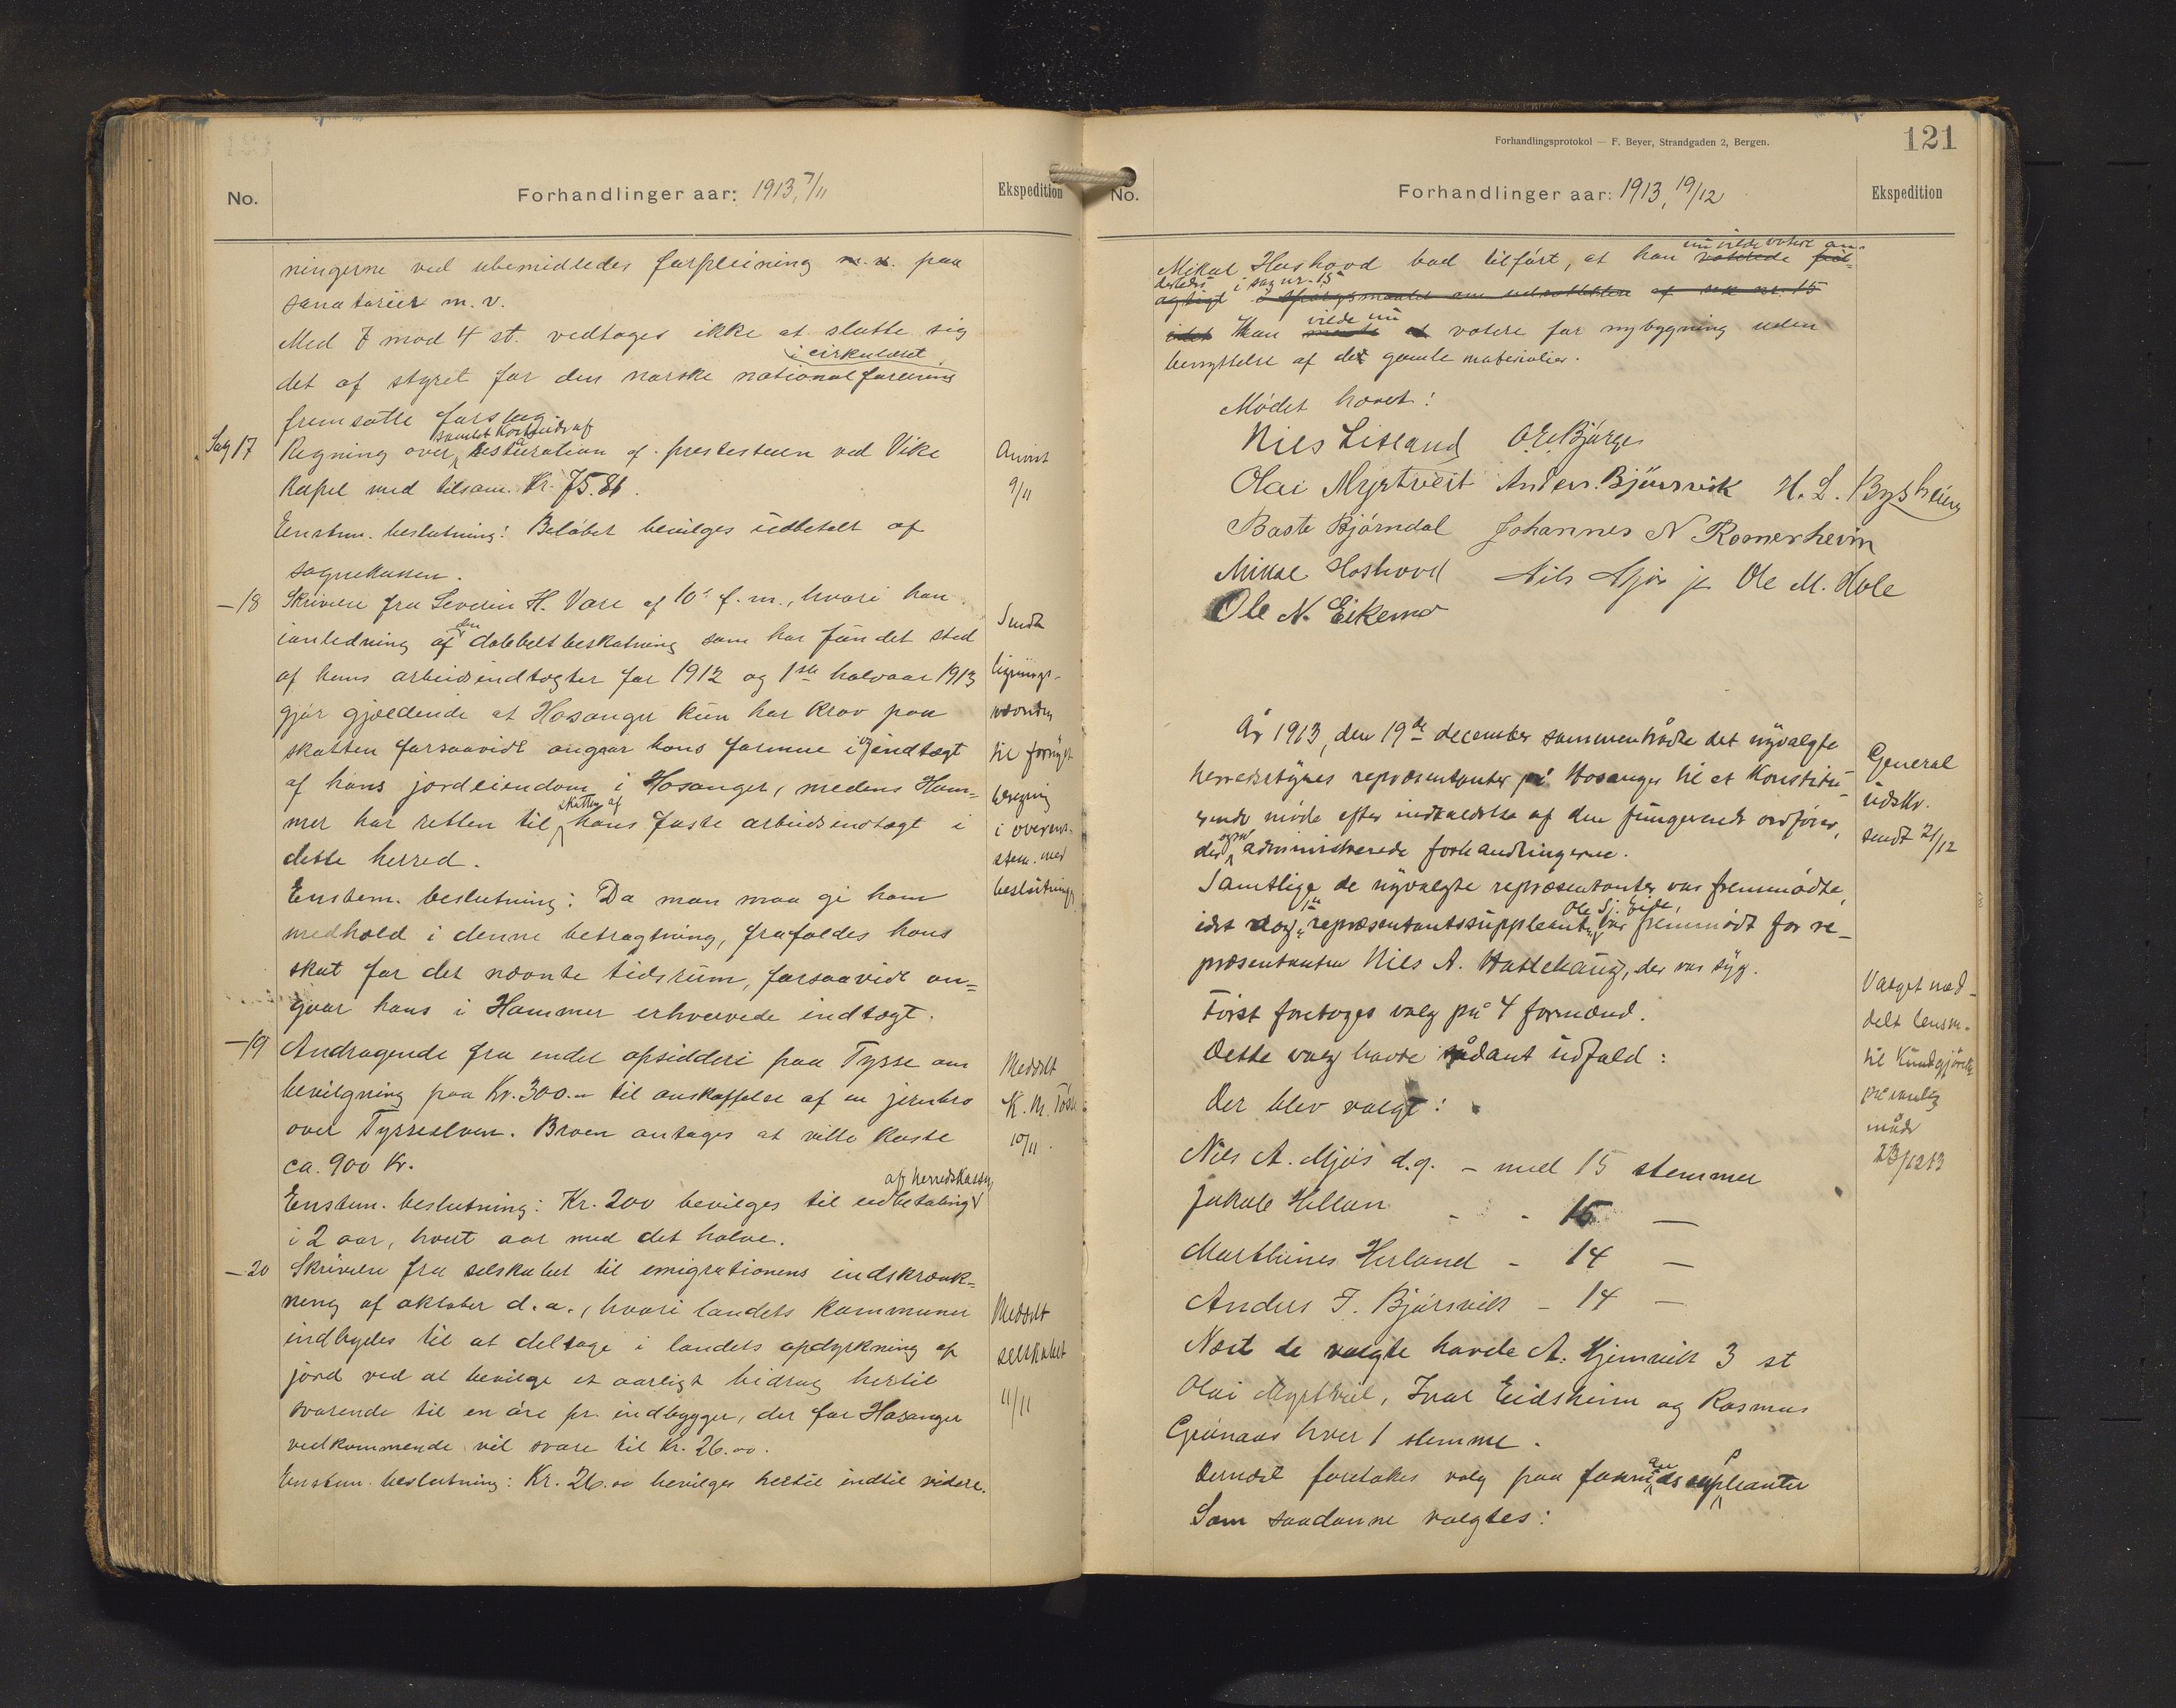 No.
Forhandlinger aar: 1913, 7/11
Ekspedition
ningerne ved ubemidledes forpleining m. v. paa
sanatorier m. v.
Med 7 mod 4 st. vedtages ikke at slutte sig
i cirkulæret
det af styret for den norske nationalforening
fremsatte forslag.
samt kostends af
Sag 17 Regning over restaration af prestestuen ved Vike
Kapel med tilsam. Kr. 75.81.
Enstem. beslutning: Beløbet bevilges udbetalt af
sognekassen.
Anvist
9/11
— 18 Skrivelse fra Severin H. Vare af 10' f. m., hvori han
ianledning af den dobbeltbeskatning som har fundet sted
af hans arbeidsindtægter for 1912 og 1ste halvaar 1913
gjør gjældende at Hosanger kun har krav paa
skatten forsaavidt angaar hans formue i og indtægt
af hans jordeiendom i Hosanger, medens Ham=
mer har retten til skatten af hans faste arbeidsindtægt i
dette herred.
Enstem. beslutning: Da man maa gi ham
medhold i denne betragtning, frafaldes hans
skat for det nævnte tidsrum, forsaavidt an=
gaar hans i Hammer erhvervede indtægt.
Sendt
lignings-
nævnden
til fornyet
beregning
i overens-
stem. med
beslutning
— 19 Andragende fra endel opsiddere paa Tysse om
bevilgning paa Kr. 300.- til anskaffelse af en jernbro
over Tysseelven. Broen antages at ville koste
ca. 900 Kr.
af herredskassen
Enstem. beslutning: Kr. 200 bevilges til udbetaling
i 2 aar, hvert aar med det halve.
Meddelt
K. M.
10/11.
— 20 Skrivelse fra selskabet til emigrationens indskrænk=
ning af oktober d. a., hvori landets kommuner
indbydes til at deltage i landets opdyrkning af
jord ved at bevilge et aarligt bidrag hertil
svarende til en øre pr. indbygger, der for Hosanger
vedkommende vil svare til Kr. 26.00.
Enstem. beslutning: Kr. 26.00 bevilges hertil indtil videre.
Meddelt
selskabet
11/11
Forhandlingsprotokol — F. Beyer, Strandgaden 2, Bergen.
121
No.
Forhandlinger aar: 1913, 19/12
Ekspedition
nu vilde votere an-
Mikal Hoshovd bad tilført, at han voterede feil-
derledes i sag nr. 15
agtigt i spørgsmaalet om af sak nr. 15
vilde nu
idet Han mente at votere for nybygning uden
benyttelse af de gamle materialier.
Mødet hævet!
Nils Litland O. E. Bjørge
Olai Myrtveit Anders Bjørsvik H. L. Bysheim
Baste Bjørndal Johannes N Romerheim
Mikal Hoshovd Nils Mjøs jr Ole M. Hole
Ole N. Eikemo
År 1913, den 19de december sammentrådte det nyvalgte
herredstyres repræsentanter på Hosanger til et konstitu-
erende møde efter indkaldelse af den fungerende ordfører,
der også administrerede forhandlingerne.
Samtlige de nyvalgte repræsentanter var fremmødte,
Ole Sj. Eide,
idet dog 1ste repræsentantssuppleant var fremmødt for re-
præsentanten Nils A. Hatlehaug, der var syg.
Først foretoges valg på 4 formænd.
Dette valg havde sådant udfald:
Der blev valgt:
Nils A. Mjøs d. y. - med 15 stemmer
Jakob Hellan - - 15 —
Marthinus Herland - 14 —
Anders J. Bjørsvik - 14 —
Næst de valgte havde A. Hjemvik 3 st
Olai Myrtveit, Ivar Eidsheim og Rasmus
Grønaas hver 1 stemme.
Dernæst foretokes valg paa formændssuppleanter
Som saadanne valgtes:
General
udskr.
sendt 21/12
Valget med-
delt lensm.
til kundgjørelse
på vanlig
måde
23/12 13